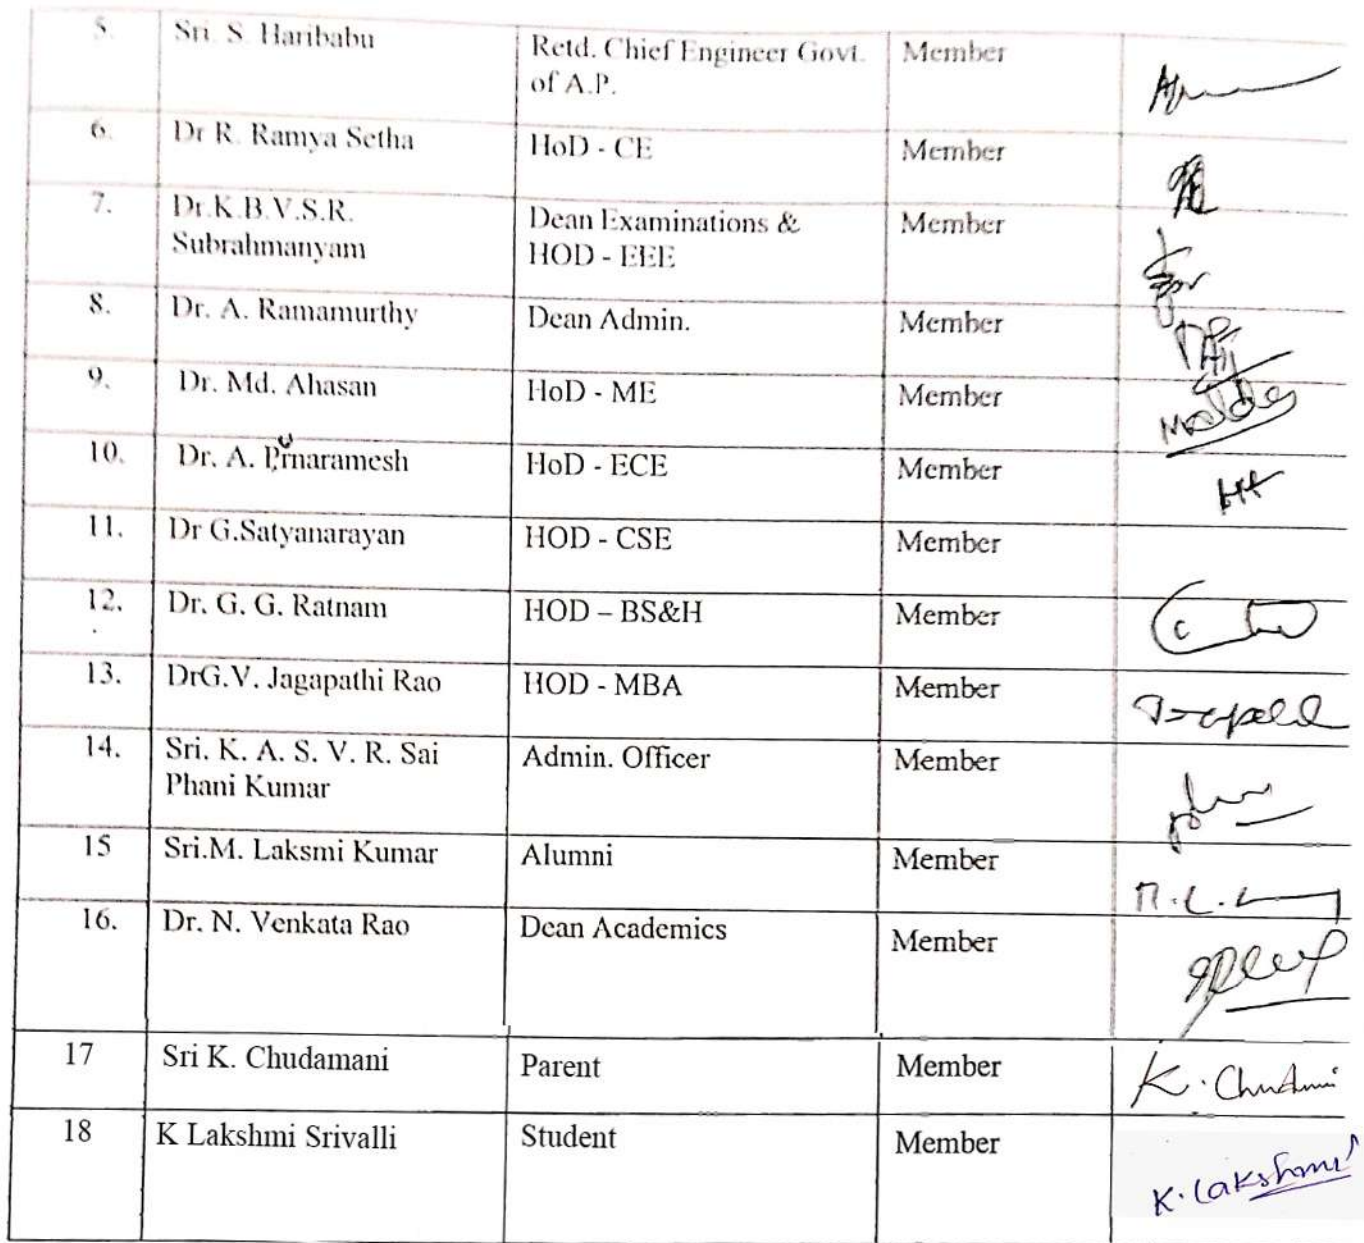 5. Sri. S. Haribabu Retd. Chief Engineer Govt. Member
of A.P.
6. Dr R. Ramya Setha HoD - CE Member
7. Dr.K.B.V.S.R. Dean Examinations & Member
Subrahmanyam HOD - EEE
8. Dr. A. Ramamurthy Dean Admin. Member
9. Dr. Md. Ahasan HoD - ME Member
10. Dr. A. Purnaramesh HoD - ECE Member
11. Dr G.Satyanarayan HOD - CSE Member
12. Dr. G. G. Ratnam HOD – BS&H Member
13. DrG.V. Jagapathi Rao HOD - MBA Member
14. Sri. K. A. S. V. R. Sai Admin. Officer Member
Phani Kumar
15 Sri.M. Laksmi Kumar Alumni Member
16. Dr. N. Venkata Rao Dean Academics Member
17 Sri K. Chudamani Parent Member K.
18 K Lakshmi Srivalli Student Member K. Lakshmi